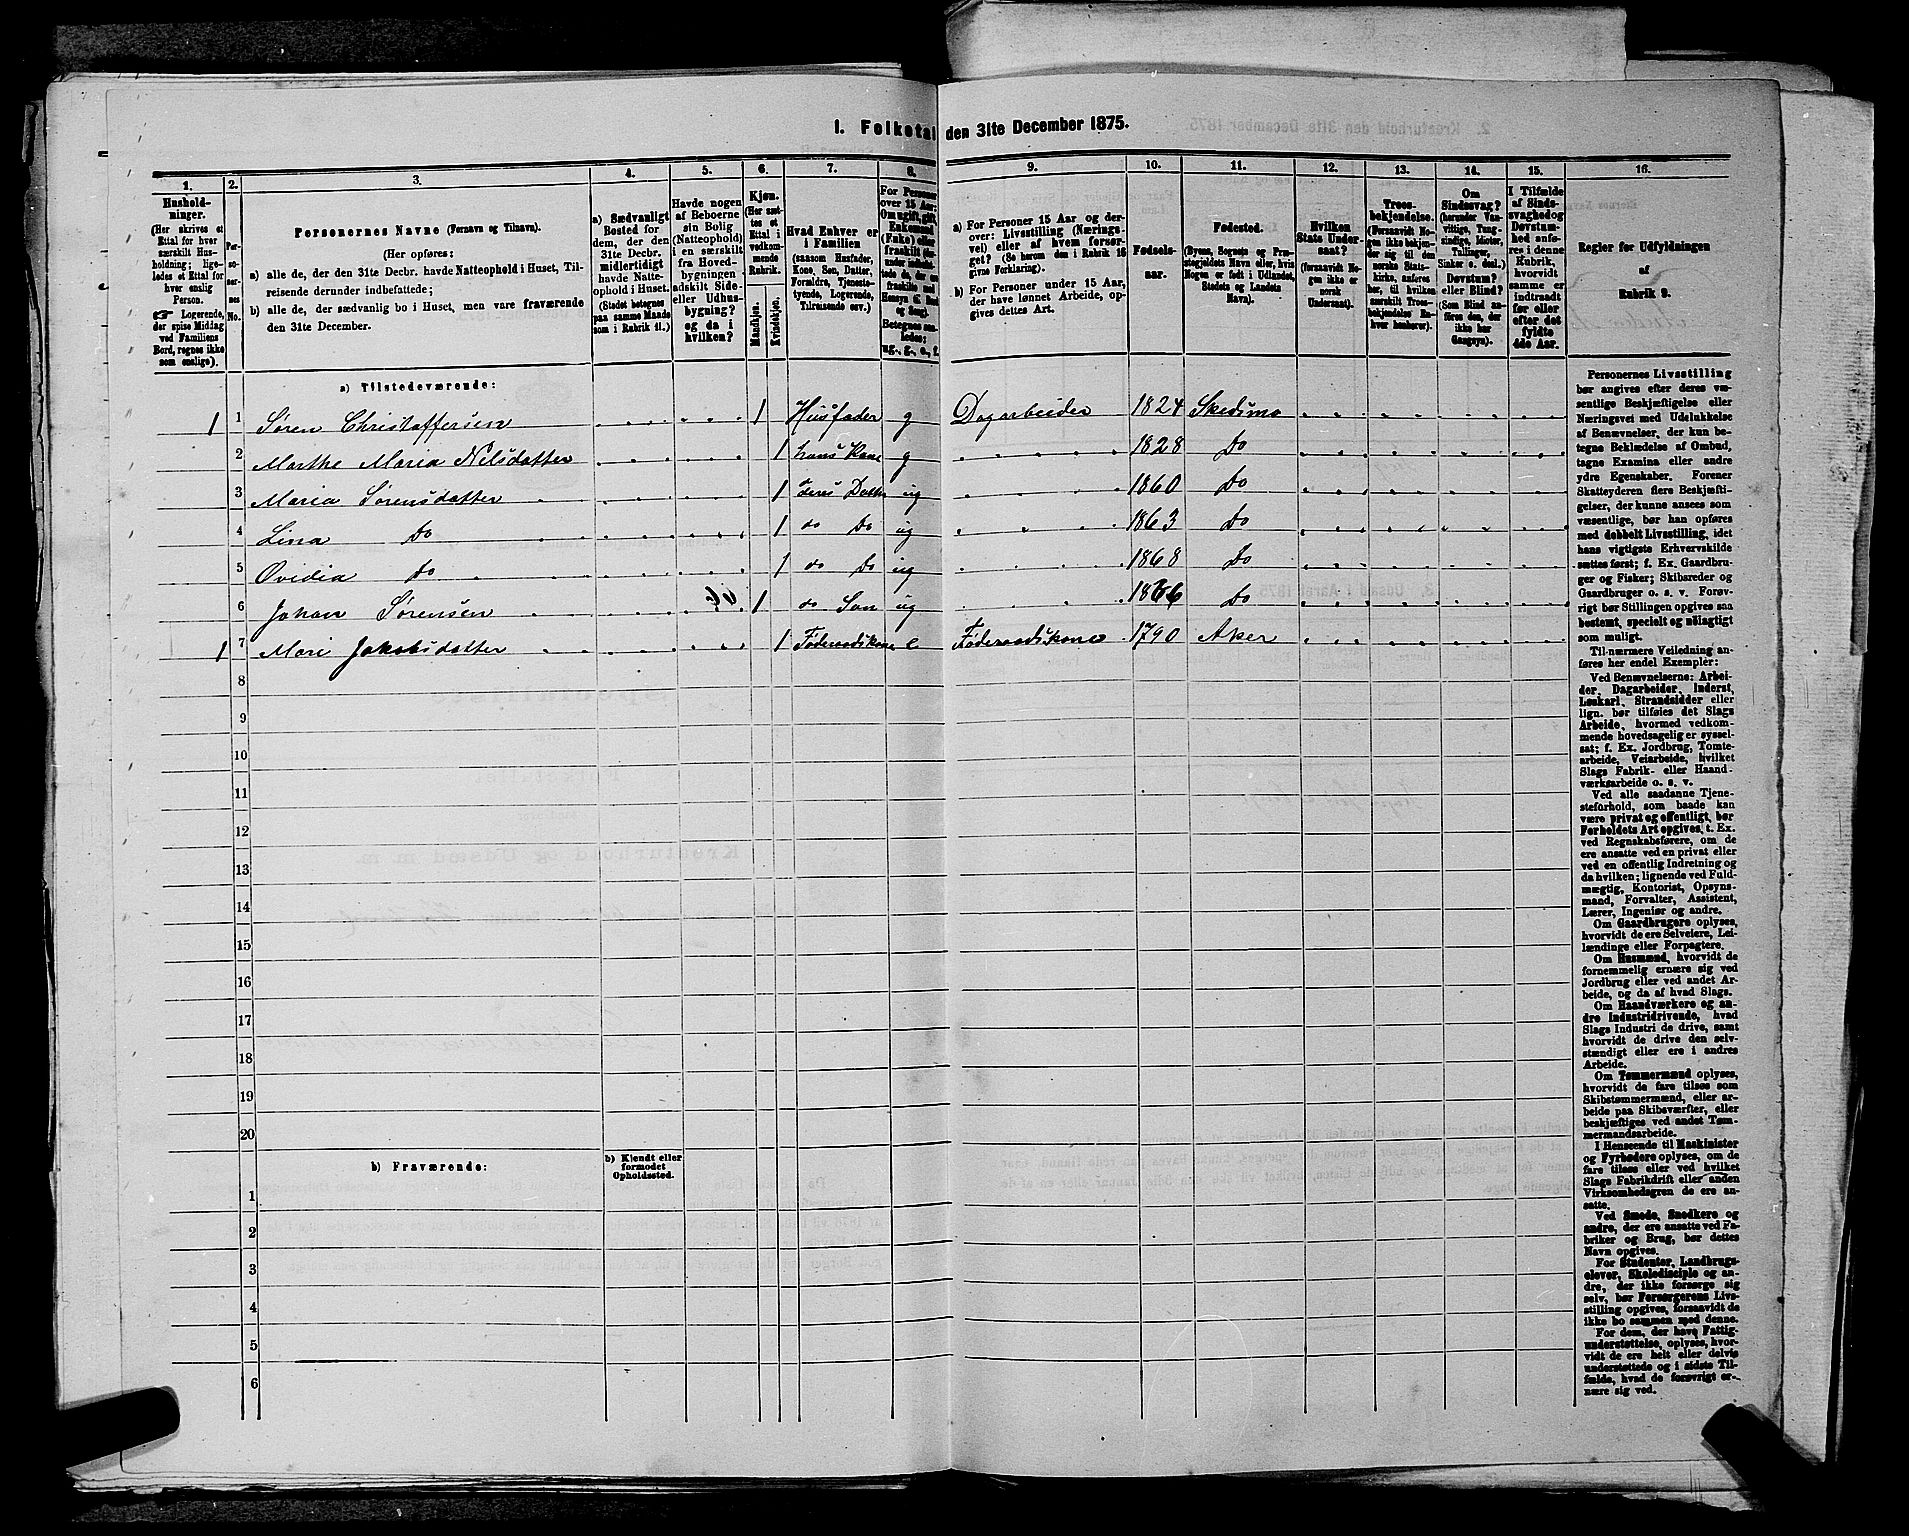 1. Folketal den 31te December 1875.
1. 2. 3. 4. 5. 6. 7. 8. 9. 10. 11. 12. 13. 14. 15. 16.
Hushold-
ninger.
(Her skrives et
Ettal for hver
særskilt Hus-
holdning; lige-
ledes et Ettal for
hver enslig
Person.
☞ Logerende,
der spise Middag
ved Familiens
Bord, regnes ikke
som enslige).
Per-
so-
ner-
nes
No.
Personernes Navne (Fornavn og Tilnavn).
(Her opføres:
a) alle de, der den 31te Decbr. havde Natteophold i Huset, Til-
reisende derunder indbefattede;
b) alle de, der sædvanlig bo i Huset, men vare fraværende
den 31te December.
a) Sædvanligt
Bosted for
dem, der den
31te Decbr.
midlertidigt
havde Natte-
ophold i Huset.
(Stedet betegnes
paa samme Maade
som i Rubrik 11.)
Havde nogen
af Beboerne
sin Bolig
(Natteophold)
en særskilt
fra Hoved-
bygningen
adskilt Side-
eller Udhus-
bygning?
og da i
hvilken?
Kjøn.
(Her sæt-
tes et
Ettal i
vedkom-
mende
Rubrik.
Mandkjøn.
Kvindekjøn.
Hvad Enhver er
i Familien
(saasom Husfader,
Kone, Søn, Datter,
Forældre, Tjeneste-
tyende, Logerende,
Tilreisende osv.)
For Personer
over 15 Aar:
Om ugift, gift,
Enkemand
(Enke) eller
fraskilt
Betegnes saa-
ledes:
ug., g., e., f.
a) For Personer 15 Aar og der-
over: Livsstilling (Nærings-
vei) eller af hvem forsør-
get? (Se herom den i Rubrik 16
givne Forklaring).
b) For Personer under 15 Aar,
der have lønnet Arbeide, op-
gives dettes Art.
Fødsels-
aar.
Fødested.
(Byens, Sognets og Præ-
stegjeldets Navn eller, hvis
Nogen er født i Udlandet,
Stedets og Landets
Navn).
Hvilken
Stats Under-
saat?
(forsaavidt No-
gen ikke er
norsk
Undersaat).
Troes-
bekjendelse.
(Forsaavidt No-
gen ikke bekjen-
der sig til den
norske Stats-
kirke, anføres
her, til hvilken
særskilt Troes-
bekjendelse En-
hver henhører).
Om
Sindssvag?
(herunder Van-
vittige, Tung-
sindige, Idioter,
Tullinger,
Sinker o. desl.)
Døvstum?
eller Blind?
(Som Blind an-
føres den, der
ikke har
Gangsyn).
I Tilfælde
af Sinds-
svaghed og
Døvstum-
hed anfø-
res i denne
Rubrik,
hvorvidt
samme er
indtraadt
før eller
efter det
fyldte
4de Aar.
Regler for Udfyldningen
af
Rubrik 9.
a) Tilstedeværende:
1 1 Søren Christoffersen 1 Husfader g Dagarbeider 1824 Skedsmo
2 Marthe Maria Nilsdatter 1 hans Kone g 1828 Do
3 Maria Sørensdatter 1 deres Datter ug 1860 Do
4 Lina Do 1 do Do ug 1863 Do
5 Ovidia Do 1 do Do ug 1868 Do
6 Johan Sørensen 1 do Søn ug 1866 Do
1 7 Mari Jakobsdatter 1 Føderaadskone e Føderaadskone 1790 Aker
8
9
10
11
12
13
14
15
16
17
18
19
20
b) Fraværende:
b) Kjendt eller
formodet
Opholdssted.
1
2
3
4
5
6
Personernes Livsstilling
bør angives efter deres væ-
sentlige Beskjæftigelse eller
Næringsvei med Udelukkelse
af Benævnelser, der kun be-
tegne Beklædelse af Ombud,
tagne Examina eller andre
ydre Egenskaber. Forener
Skatteyderen flere Beskjæfti-
gelser, der kunne ansees som
væsentlige, bør han opføres
med dobbelt Livsstilling, idet
hans vigtigste Erhvervskilde
sættes først; f. Ex. Gaardbru-
ger og Fisker; Skibsreder og
Gaardbruger o. s. v. Forøv-
rigt bør Stillingen opgives saa
bestemt, specielt og nøiagtigt
som muligt.
Til nærmere Veiledning an-
føres her endel Exempler:
Ved Benævnelserne: Arbei-
der, Dagarbeider, Inderst,
Løskarl, Strandsidder eller
lign. bør tilføies det Slags
Arbeide, hvormed vedkom-
mende hovedsagelig er syssel-
sat; f. Ex. Jordbrug, Tomte-
arbeide, Veiarbeide, hvilket
Slags Fabrik- eller Haand-
værksarbeide o. s. v.
Ved alle saadanne Tjene-
steforhold, som baade kan
være privat og offentligt, bør
Forholdets Art opgives, t. Ex.
ved Regnskabsførere, om de
ere ansatte ved en privat eller
ved en offentlig Indretning og
da hvilken; lignende ved Fuld-
mægtig, Kontorist, Opsyns-
mand, Forvalter, Assistent,
Lærer, Ingeniør og andre.
Om Gaardbrugere oplyses,
hvorvidt de ere Selveiere, Lei-
lændinge eller Forpagtere.
Om Husmænd, hvorvidt de
fornemmelig ernære sig ved
Jordbrug eller ved andet Ar-
beide, og da af hvad Slags.
Om Haandværkere og an-
dre Industridrivende, hvad
Slags Industri de drive, samt
hvorvidt de drive den selv-
stændigt eller ere i andres
Arbeide.
Om Tømmermænd oplyses,
hvorvidt de fare tilsøs som
Skibstømmermænd, eller ar-
beide paa Skibsværfter, eller
beskjæftiges ved andet Tøm-
mermandsarbeide.
I Henseende til Maskinister
og Fyrbødere oplyses, om de
fare tilsøs eller ved hvilket
Slags Fabrikdrift eller anden
Virksomhedsgren de ere an-
satte.
Ved Smede, Snedkere og
andre, der ere ansatte ved Fa-
briker og Brug, bør dettes
Navn opgives.
For Studenter, Landbrugs-
elever, Skoledisciple og an-
dre, der ikke forsørge sig
selv, bør Forsørgerens Livs-
stilling opgives, forsaavidt de
ikke bo sammen med denne.
For dem, der have Fattig-
understøttelse, oplyses, hvor-
vidt de ere helt eller delvis
understøttede og i sidste Til-
fælde, hvad de forøvrigt er-
nære sig ved.